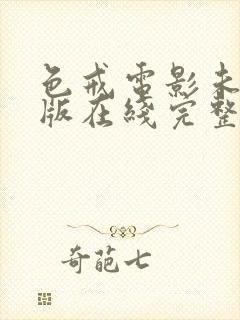 色戒電影未
版在綫完整
奇葩七